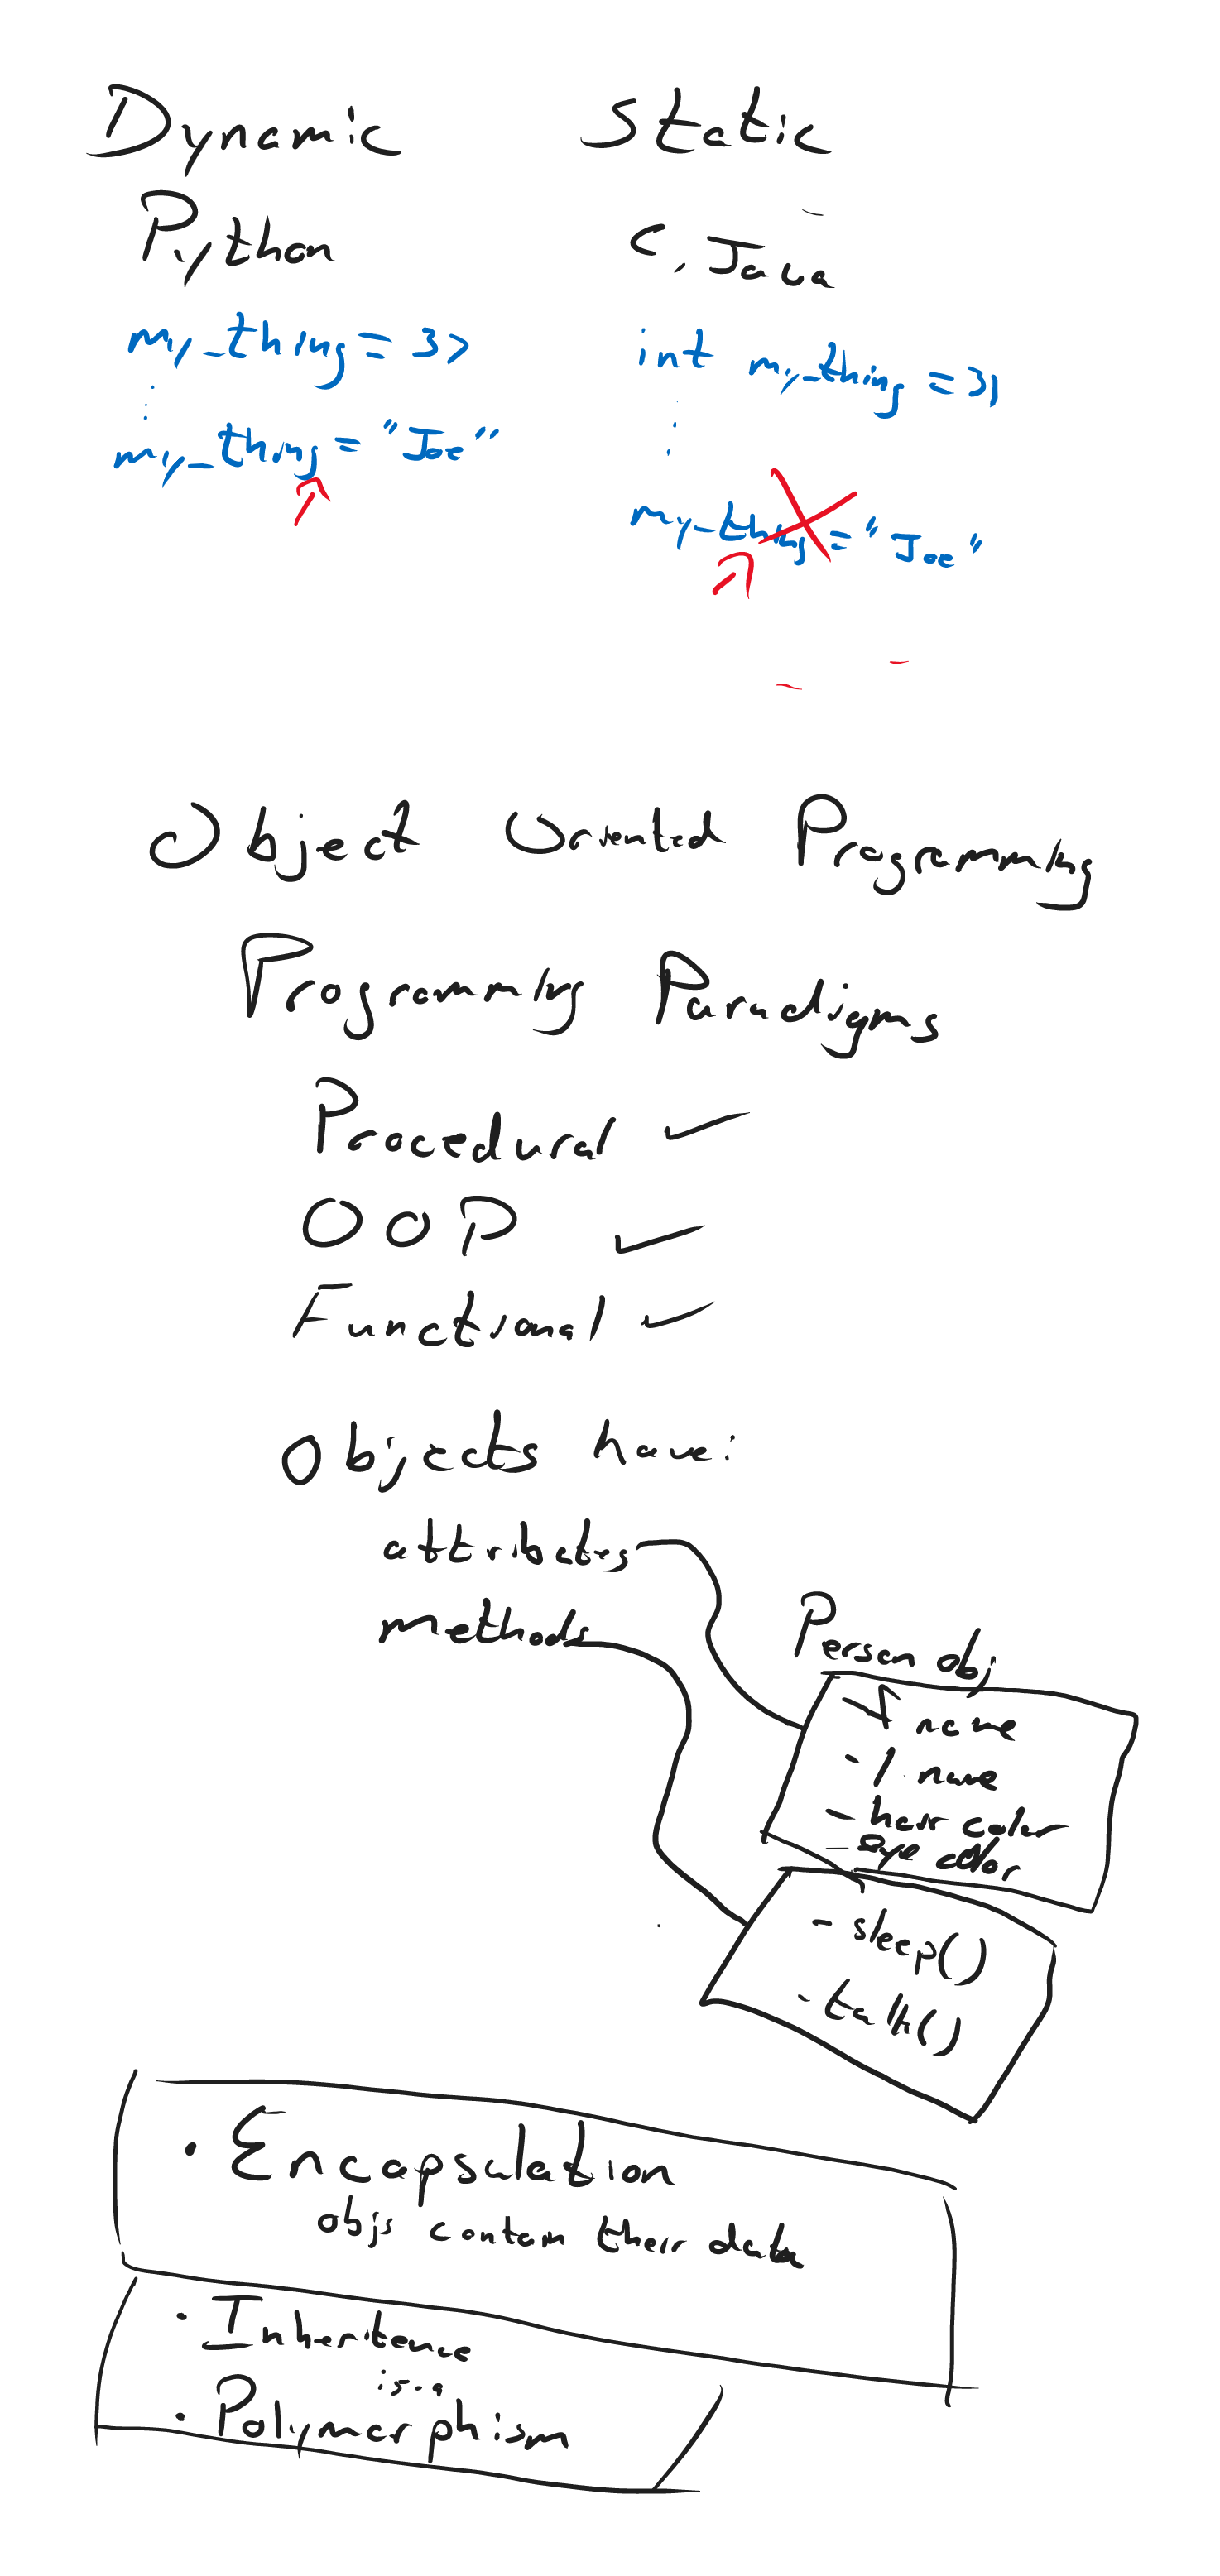 Dynamic
Static
Python
C, Java
my_thing = 37
int my_thing = 31
my_thing = "Joe"
my_thing = "Joe"
Object Oriented Programming
Programming Paradigms
Procedural ✓
OOP ✓
Functional ✓
Objects have:
attributes
methods
Person obj
- f name
- l name
- hair color
- eye color
- sleep()
- talk()
• Encapsulation
objs contain their data
• Inheritence
is-a
• Polymorphism